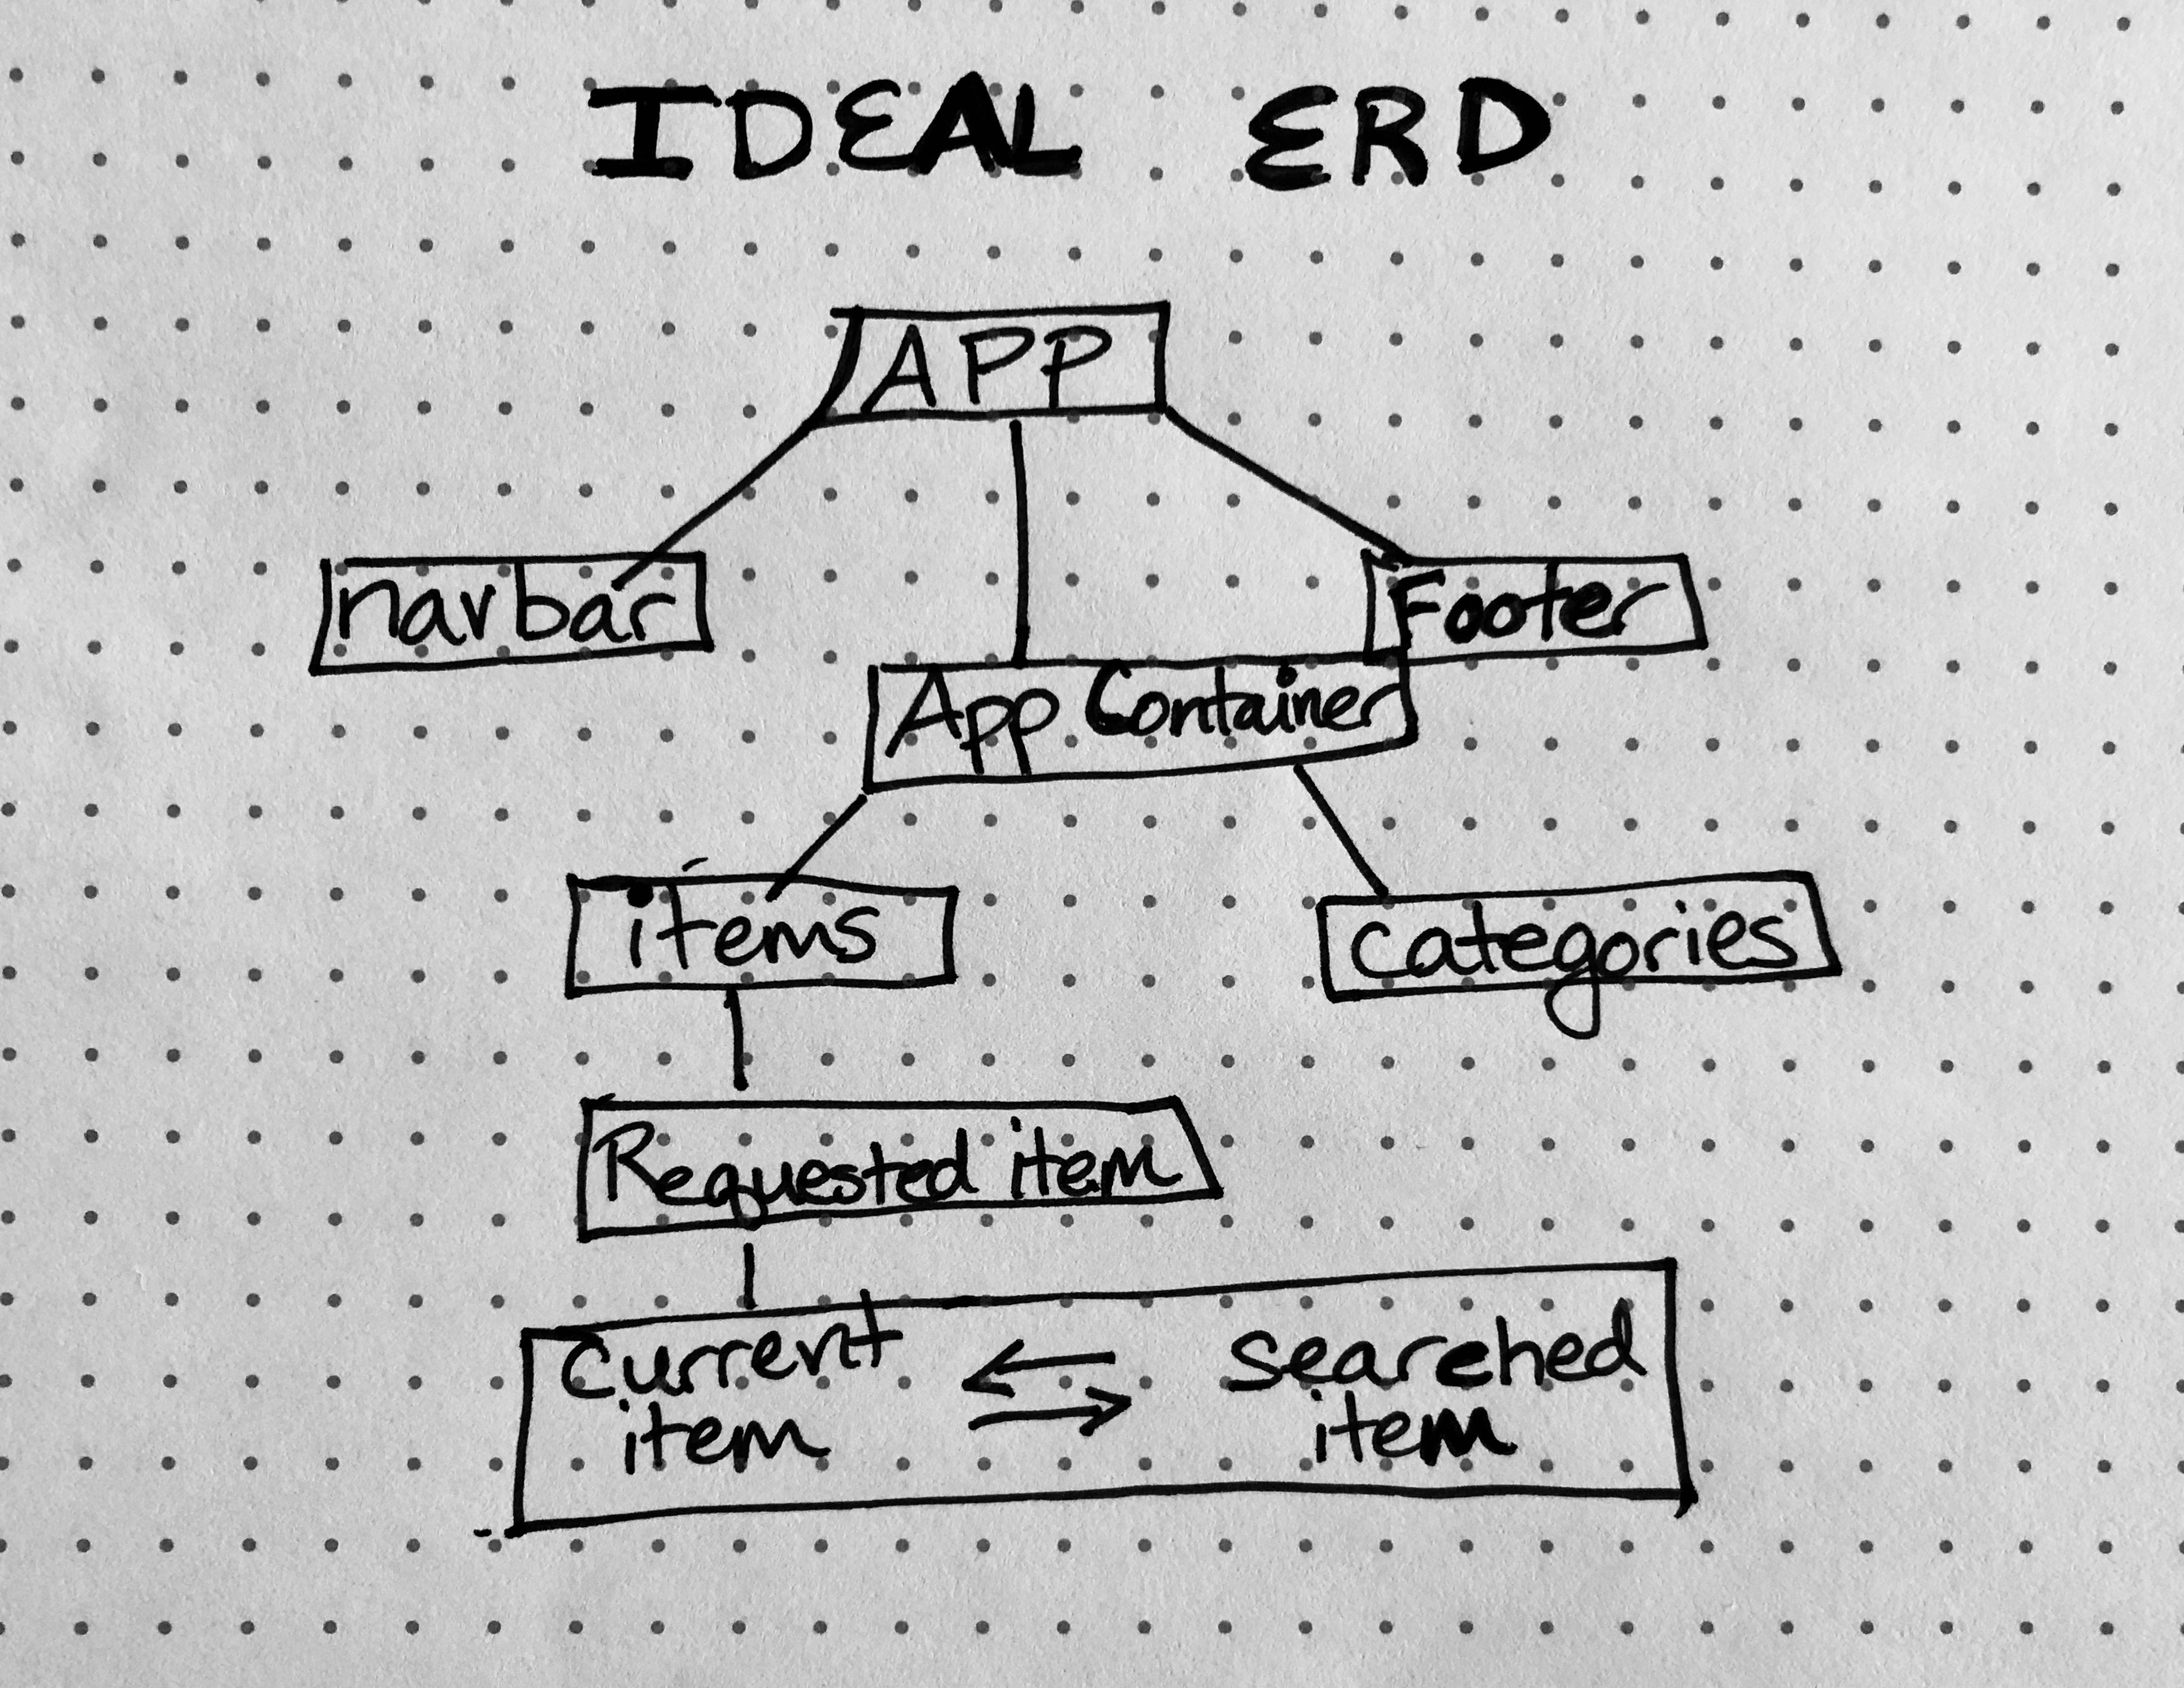 IDEAL ERD
APP
navbar
Footer
App Container
items
categories
Requested item
current
item
searched
item